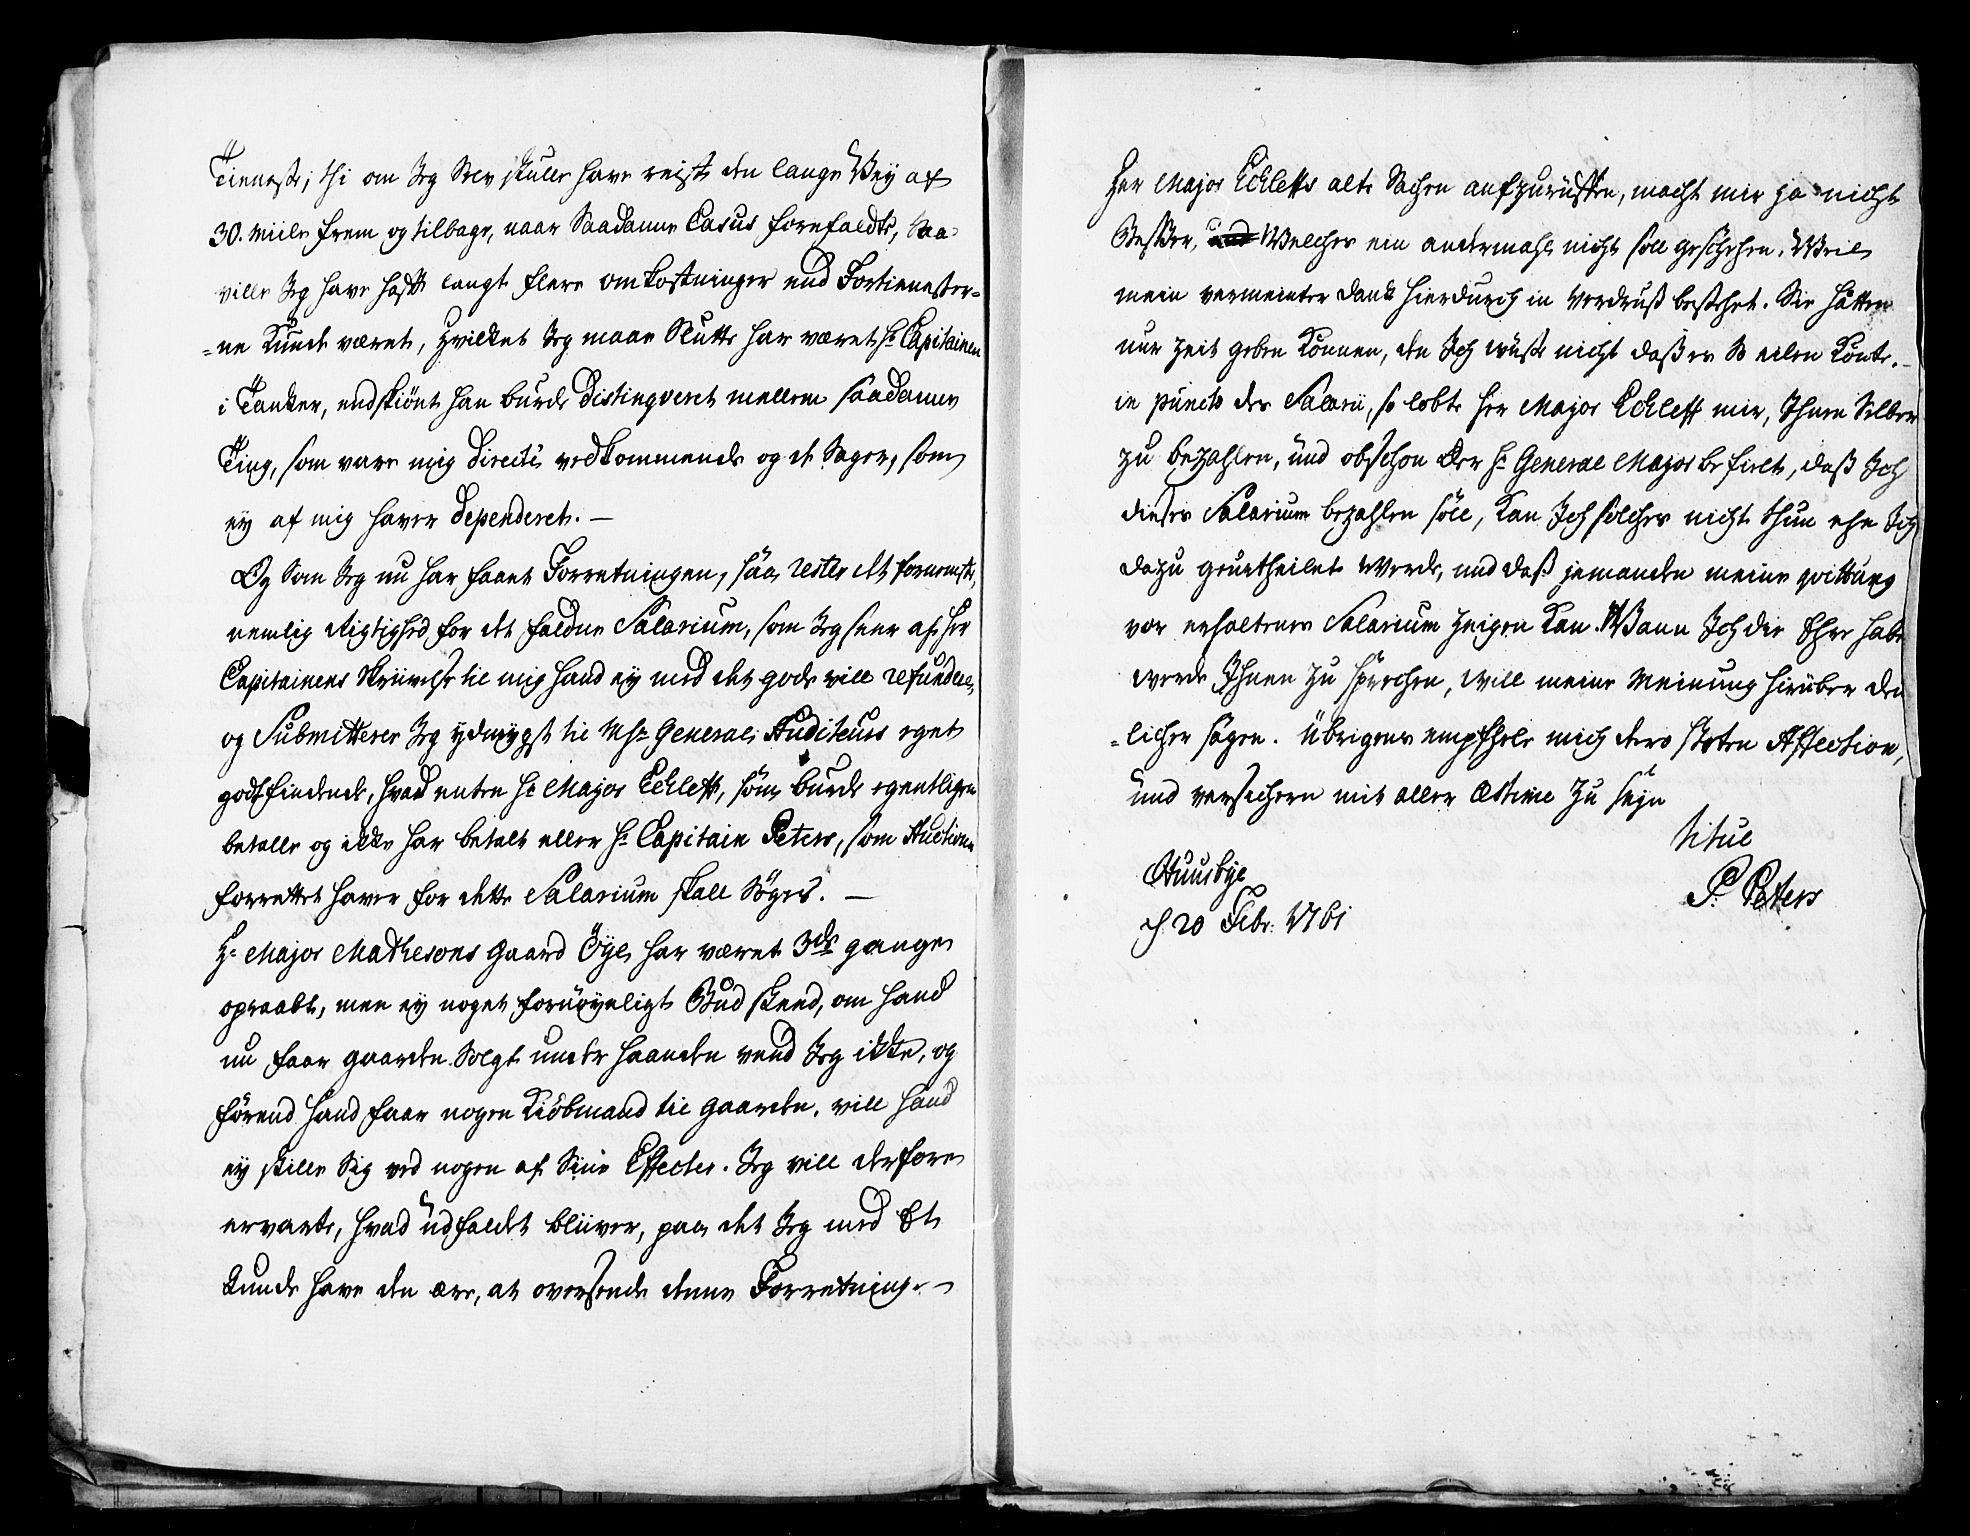 Tieneste; thi om Jeg Selv skulle have reist den lange Vey af
30. Miile frem og tilbage, naar Saadanne Casus forefaldte, Saa
ville Jeg have hafft langt flere omkostninger end Fortienester-
=ne Kunde været, hvilket Jeg maae Slutte har været Hr Capitainen
i Tanker, endskiønt han burde Distingveret mellem saadanne
Ting, som vare mig Directe vedkommende og de Sager, som
ey af mig haver Dependeret. —
Og Som Jeg nu har faaet Forretningen, saa rester det fornemste,
nemlig Rigtighed for det faldne Salarium, som Jeg seer af Her
Capitainens Skrivelse til mig hand ey med det gode vill refundere,
og Submitterer Jeg ydmygst til Hr General Auditeurs eget
godtfindende, hvad enten Hr Major Eckleff, som burde egentligen
betalle og ikke har betalt eller Hr Capitain Peters, som Auctionen
forrettet haver for dette Salarium skall Søges. —
Hr Major Mathesons Gaard Öye, har været 3de gange
opraabt, men ey noget fornöyeligt Bud skeed, om hand
nu faar gaarden Solgt under haanden veed Jeg ikke, og
förend hand faar nogen Kiöbmand til Gaarden, vill hand
ey skille Sig ved nogen af Sine Effecter. Jeg vill derfore
ervarte, hvad udfaldet bliver, paa det Jeg med Et
Kunde have den ære, at oversende denne Forretning. —
Her Major Eckleffs alte Sachen aufzurüsten, macht mir ja nicht
Besser, und Welches ein andermahl nicht soll geschehen. Weil
mein vermeinter Danck hierdurch in Verdruß bestehet. Sie hätten
nur Zeit geben Können, den Ich wuste nicht daß es So eilen Könte.
in puncto des Salarii, so lobte Her Major Eckleff mir, Ihnen Selber
zu bezahlen, und obschon der Hr General Major befielt, daß Ich
dieses Salarium bezahlen soll, Kan Ich solches nicht thun ehe Ich
dazu geurtheilet Werde, und daß jemanden meine qvittung
vor erhaltenes Salarium zeigen Kan. Wann Ich die Ehre habe
werde Ihnen zu sprechen, will meine Meinung hirüber deu
=licher sagen. Übrigens empfehle mich dero steten Affection,
und versichern mit aller Estime zu seyn
titul
P. Peters
Huusbye
d 20 Febr: 1761